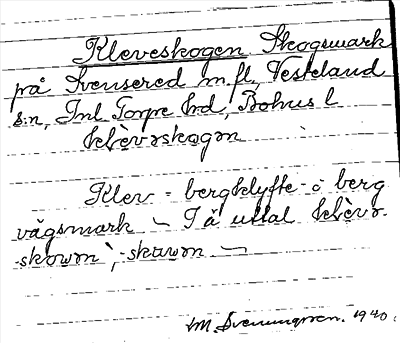 Kleveskogen Skogsmark
på Svensered m.fl, Vesteland
s:n, Inl Torpe hrd, Bohus l
klèvrskogen
Klev = bergklyfte- o berg
vägsmark — Tå uttal klèvr-
-skowrn`, -skawrn —
M. Svenungsson. 1940.